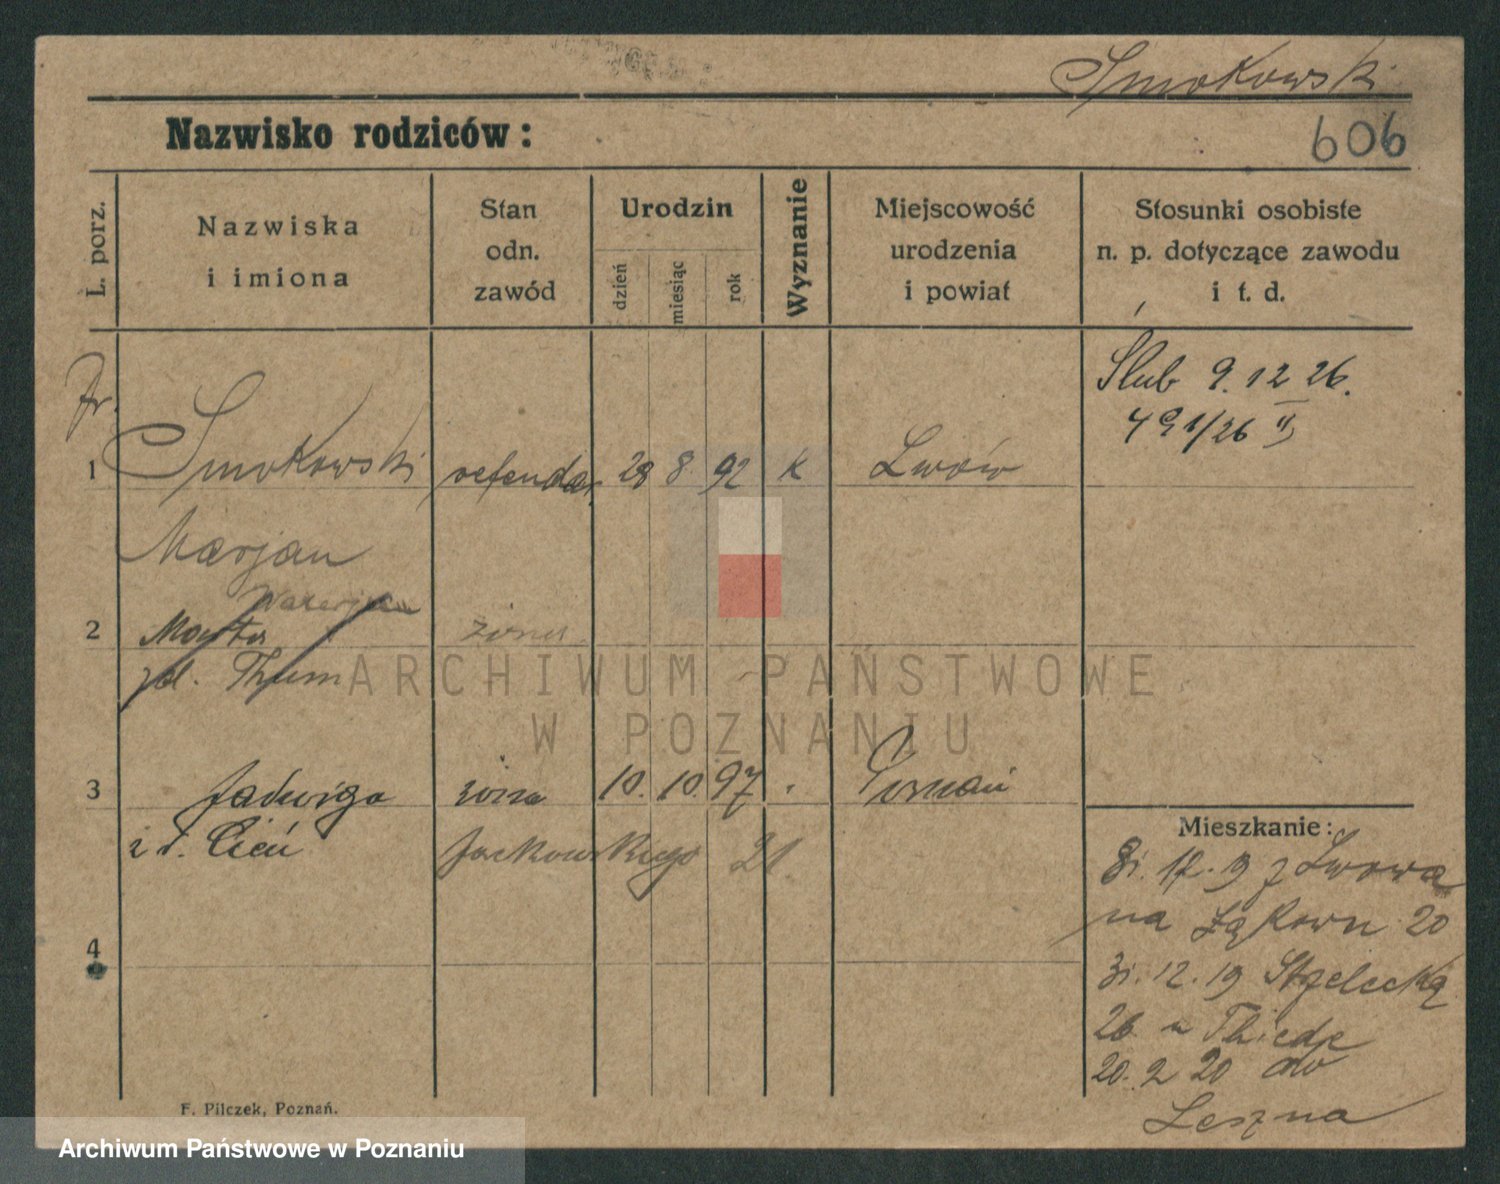 Smokowski
Nazwisko rodziców:
606
L. porz.
Nazwiska
i imiona
Stan
odn.
zawód
Urodzin
dzień
miesiąc
rok
Wyznanie
Miejscowość
urodzenia
i powiat
Stosunki osobiste
n. p. dotyczące zawodu
i t. d.
Ślub 9. 12 26.
491/26 II
1 Smokowski referendar. 28 8 92 k Lwów
Marjan
2 Marta żona
zd. Thum
3 Jadwiga żona 10. 10. 97 Poznań
z d. Cień Jackowskiego 21.
4
Mieszkanie:
12. 19 z Lwowa
na Łąkowa 20
31. 12. 19 Strzelecka
26 u Thiede
20. 2 20 do
Leszna
F. Pilczek, Poznań.
ARCHIWUM PAŃSTWOWE
W POZNANIU
Archiwum Państwowe w Poznaniu